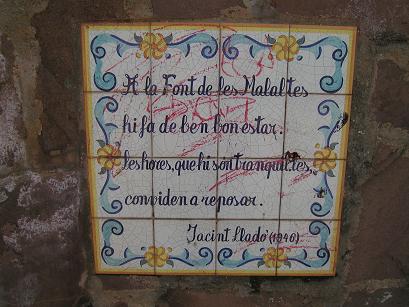 A la Font de les Malaltes
hi fa de ben bon estar.
les hores, que hi son tranquil.les,
conviden a reposar.
Jacint Lladó (1946)